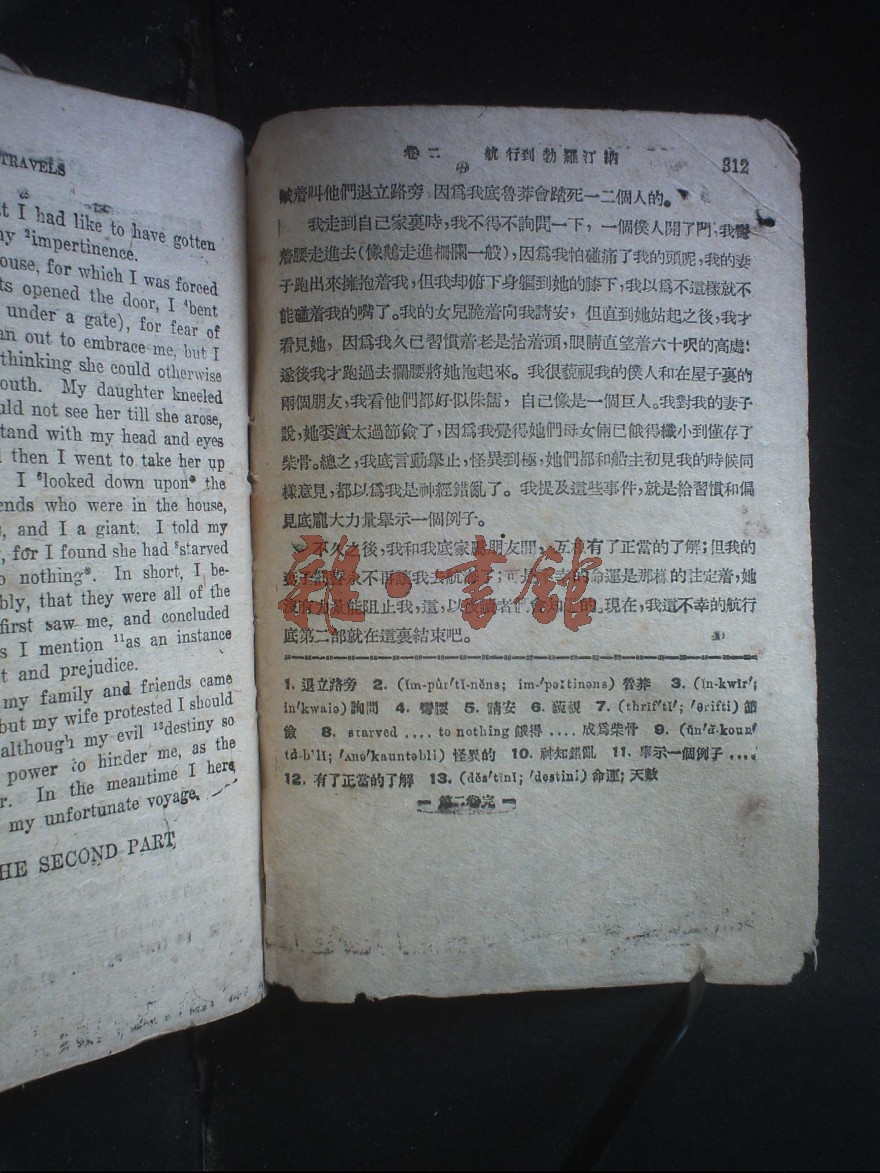 TRAVELS
t I had like to have gotten
ny ³impertinence.
ouse, for which I was forced
ts opened the door, I ⁴bent
under a gate), for fear of
an out to embrace me, but I
thinking she could otherwise
outh. My daughter kneeled
uld not see her till she arose,
tand with my head and eyes
l then I went to take her up
I ⁶looked down upon* the
ends who were in the house,
s, and I a giant. I told my
, for I found she had ⁸starved
o nothing*. In short, I be-
bly, that they were all of the
first saw me, and concluded
s I mention ¹¹as an instance
t and prejudice.
my family and friends came
but my wife protested I should
although my evil ¹³destiny so
power to hinder me, as the
r. In the meantime I here
my unfortunate voyage.
HE SECOND PART
卷二 航行到勃羅汀納 312
喊着叫他們退立路旁，因爲我底魯莽會踏死一二個人的。
我走到自己家裏時，我不得不詢問一下，一個僕人開了門，我彎
着腰走進去(像鵝走進柵欄一般)，因爲我怕碰痛了我的頭呢，我的妻
子跑出來擁抱着我，但我却俯下身軀到她的膝下，我以爲不這樣就不
能碰着我的嘴了。我的女兒跪着向我請安，但直到她站起之後，我才
看見她，因爲我久已習慣着老是抬着頭，眼睛直望着六十呎的高處：
遂後我才跑過去攔腰將她抱起來。我很藐視我的僕人和在屋子裏的
兩個朋友，我看他們都好似侏儒，自己像是一個巨人。我對我的妻子
說，她委實太過節儉了，因爲我覺得她們母女倆已餓得纖小到僅存了
柴骨。總之，我底言動舉止，怪異到極，她們都和船主初見我的時候同
樣意見，都以爲我是神經錯亂了。我提及這些事件，就是給習慣和偏
見底龐大力量舉示一個例子。
不久之後，我和我底家屬朋友間，互相有了正當的了解；但我的
妻子永不再讓我去航海了；可是的命運是那樣的註定着，她
沒有力量能阻止我，這，以後讀者們會知道的。現在，我這不幸的航行
底第二部就在這裏結束吧。
1. 退立路旁 2. (ĭm-pûr′tĭ-nĕns; im-'pə:tinəns) 魯莽 3. (ĭn-kwīr′;
in'kwaiə) 詢問 4. 彎腰 5. 請安 6. 藐視 7. (thrĭf′tĭ; 'θrifti) 節
儉 8. starved .... to nothing 餓得 .... 成爲柴骨 9. (ŭn′ă-koun′
tă-b'lĭ; 'ʌnə'kauntəbli) 怪異的 10. 神知錯亂 11. 舉示一個例子 ....
12. 有了正當的了解 13. (dĕs′tĭnĭ; 'destini) 命運；天數
第二卷完
雜·書館